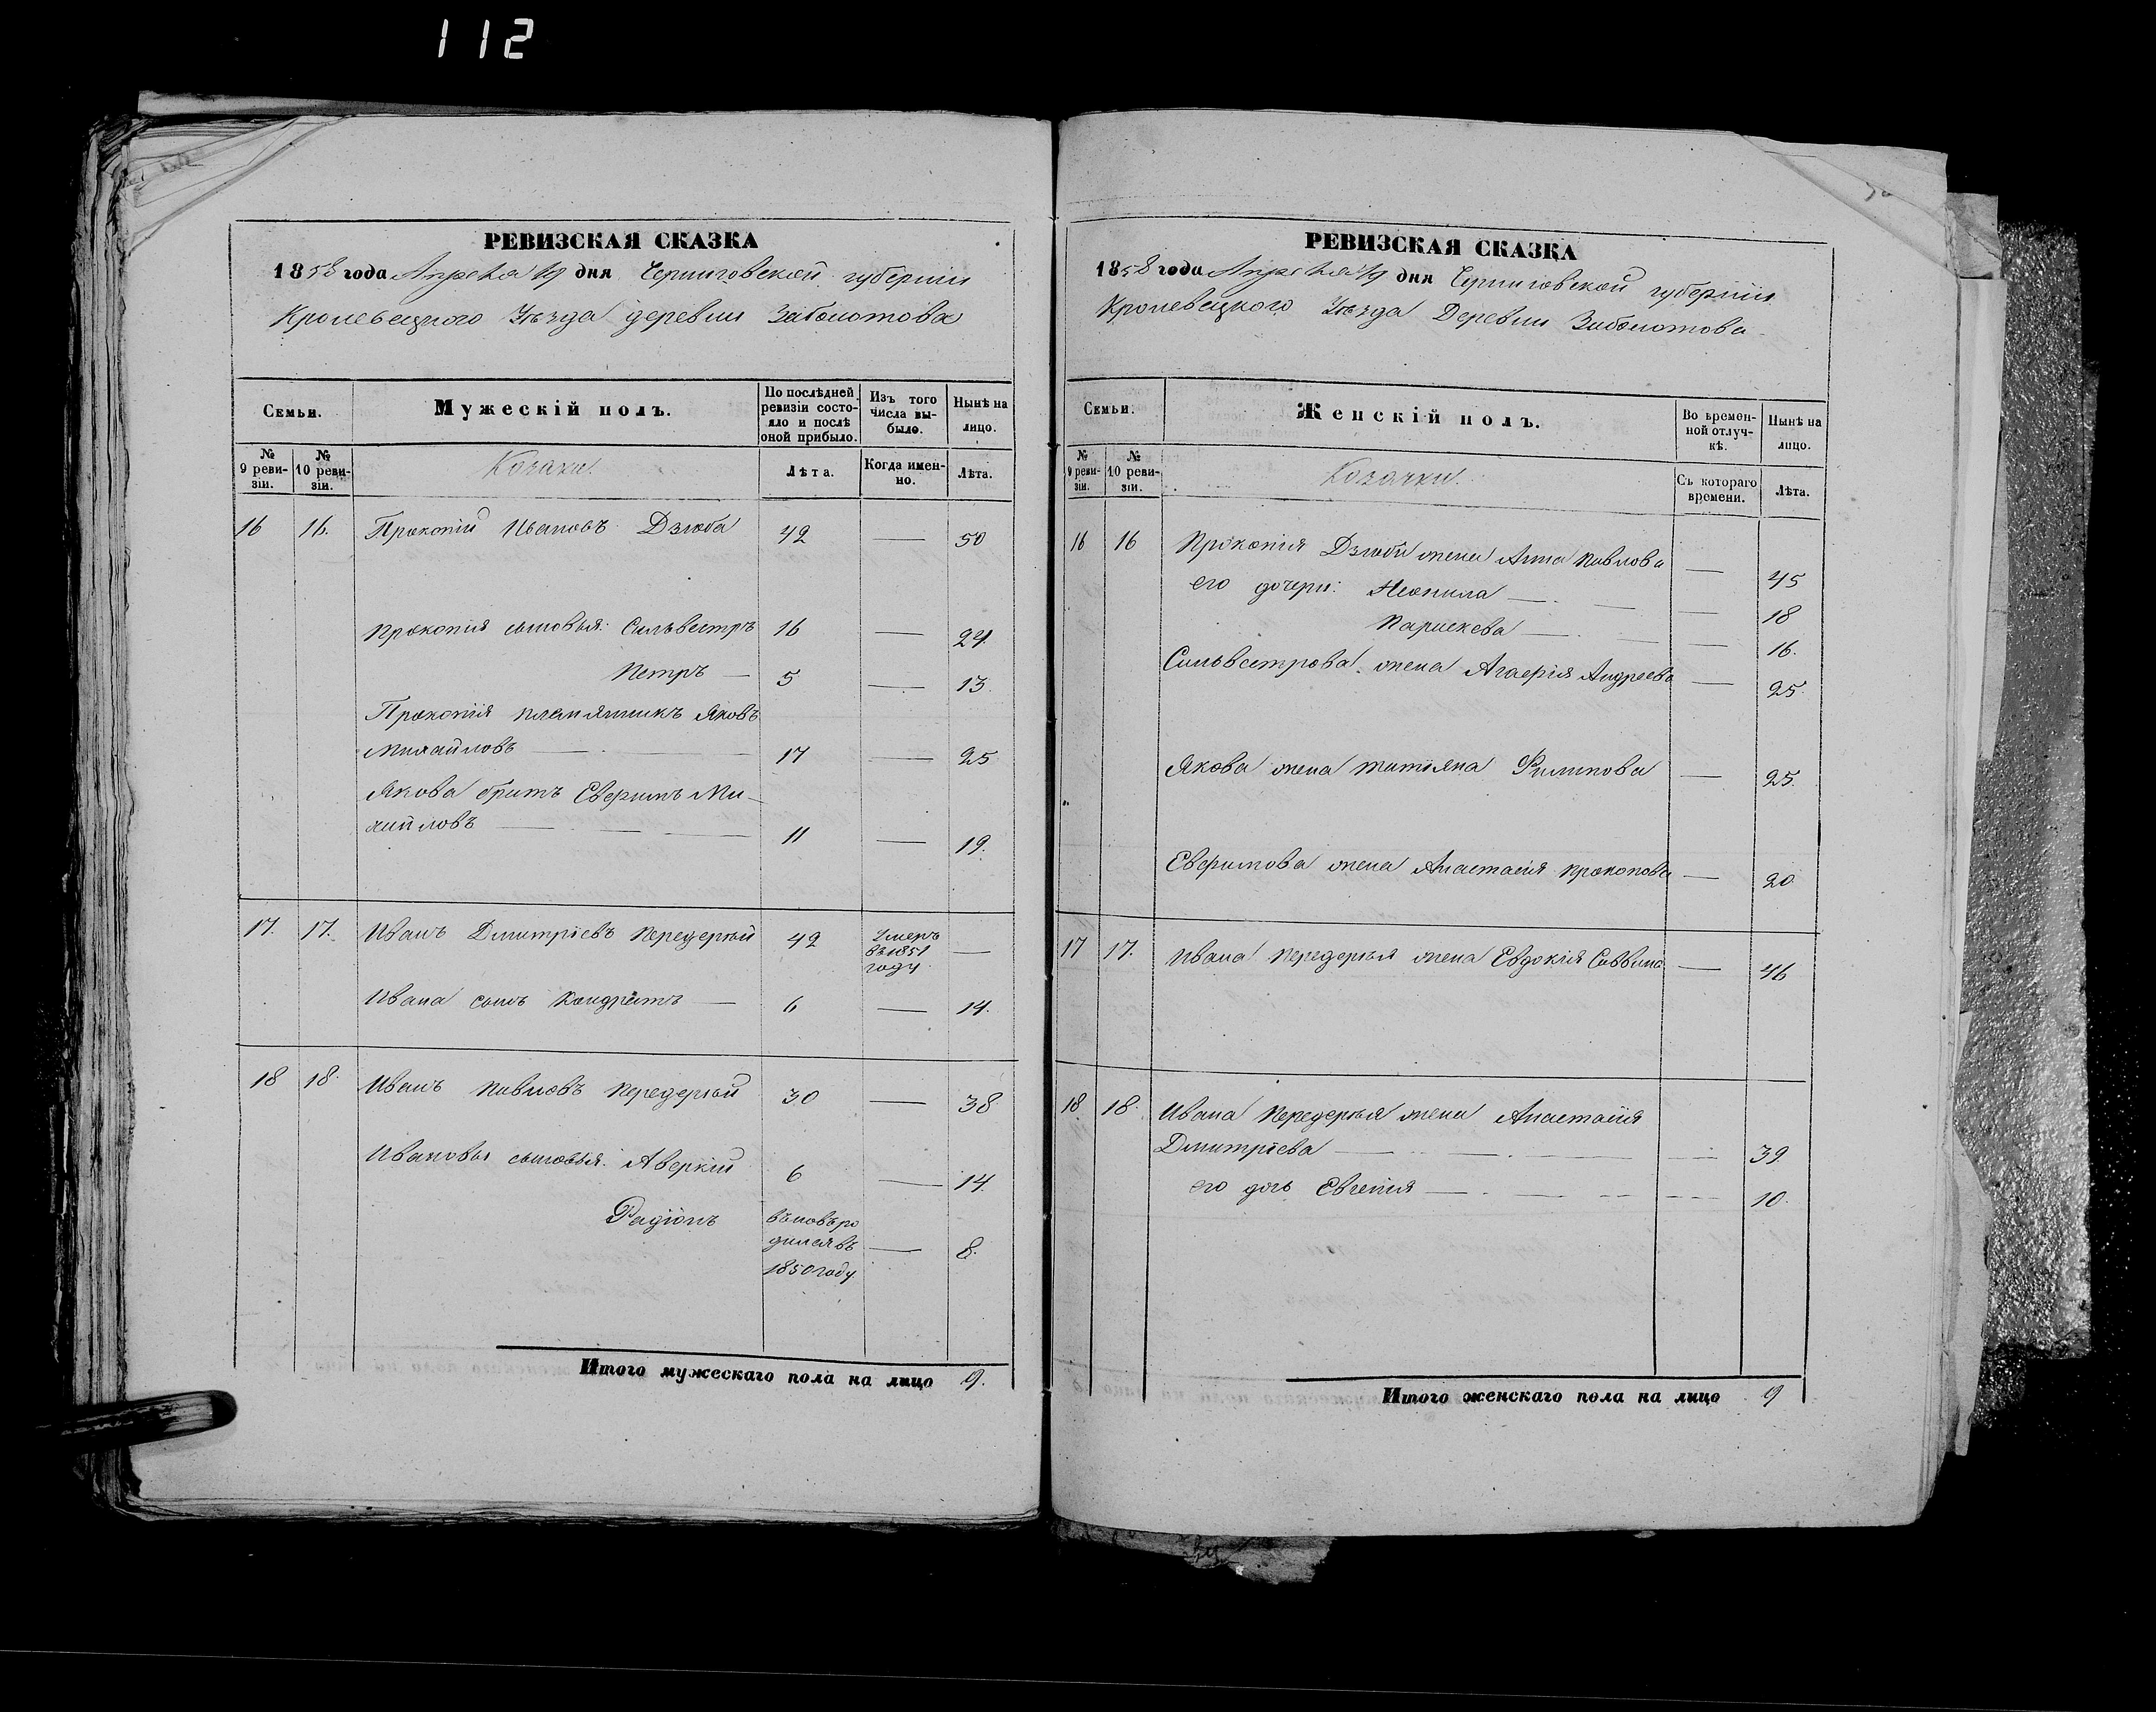 112
РЕВИЗСКАЯ СКАЗКА
1858 года Апреля 19 дня Черниговской губернии
Кролевецкого Уѣзда деревни Заболотова
Семьи.
Мужескій полъ.
По послѣдней ревизіи состояло и послѣ оной прибыло.
Изъ того числа выбыло.
Нынѣ на лицо.
№ 9 ревизіи.
№ 10 ревизіи.
Козаки.
Лѣта.
Когда именно.
Лѣта.
16 16. Прокопій Ивановъ Дзюба 42 — 50
Прокопія сыновья: Сильвестръ 16 — 24.
Петръ — 5 — 13.
Прокопія племянникъ Яковъ
Михайловъ — 17 — 25
Якова братъ Евфимъ Ми-
хайловъ — 11 — 19.
17. 17. Иванъ Дмитріевъ Передерный 42 Умеръ —
въ 1851
году.
Ивана сынъ Кондратъ — 6 — 14.
18 18. Иванъ Павловъ Передерный 30 — 38.
Ивановы сыновья: Аверкій 6 — 14.
Радіонъ вновь ро
дился въ — 8.
1850 году
Итого мужескаго пола на лицо 9.
РЕВИЗСКАЯ СКАЗКА
1858 года Апреля 19 дня Черниговской губерніи
Кролевецкого Уѣзда Деревни Заболотова
Семьи.
Женскій полъ.
Во временной отлучкѣ.
Нынѣ на лицо.
№ 9 ревизіи.
№ 10 ревизіи.
Козачки.
Съ котораго времени.
Лѣта.
16 16 Прокопія Дзюбы жена Анна Павлова — 45
его дочери: Неонила — 18
Парискева — 16.
Сильвестрова жена Агафія Андреева — 25.
Якова жена Татіяна Филипова — 25.
Евфимова жена Анастасія Прокопова — 20
17 17. Ивана Передерныя жена Евдокія Саввина — 46
18 18. Ивана Передерныя жена Анастасія
Дмитріева — 39
его дочь Евгенія — 10.
Итого женскаго пола на лицо 9